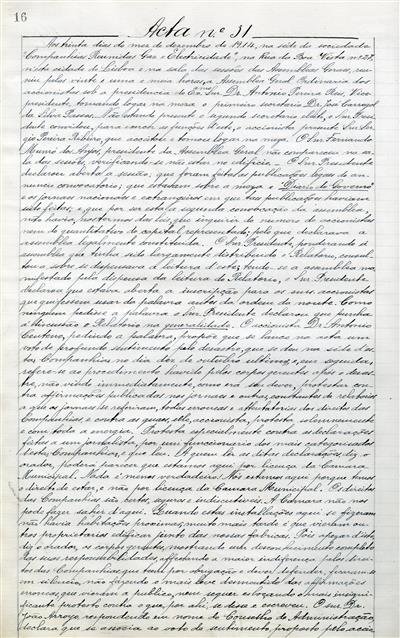 16
Acta nº 31
Aos trinta dias do mez de dezembro de 1914, na séde da sociedade
"Companhias Reunidas Gaz e Electricidade", na Rua da Boa Vista nº 31,
n'esta cidade de Lisboa e na sala das sessões das Assembleas Geraes, reu-
niu pelas vinte e uma e meia horas, a Assemblea Geral Ordinaria dos
accionistas sob a presidencia do Exmo Snr. Dr. Antonio Pereira Reis, Vice-
presidente, tomando logar na mesa o primeiro secretario Dr. José Carregal
da Silva Passos. Não estando presente o segundo secretario eleito, o Snr. Presi-
dente convidou, para exercer as funcções d'este, o accionista presente Snr. Ser-
gio Pereira, que acceitou e tomou logar na mesa. O Snr. Fernando
Munró dos Anjos, presidente da Assemblea Geral não compareceu na sa-
la das sessões, verificando-se não estar no edificio. O Snr. Presidente
declarou aberta a sessão; que foram feitas publicações legaes do an-
nuncio convocatorio; que estavam sobre a mesa o Diario do Governo
e os jornaes nacionaes e extrangeiros em que taes publicações haviam
sido feitas; e que por ser esta a segunda convocação da assemblea,
não havia, nos termos das leis, que inquirir do numero de accionistas
nem do quantitativo do capital representado, pelo que declarava a
assemblea legalmente constituida. O Snr. Presidente, ponderando á
assemblea que tinha sido largamente distribuido o Relatorio, consul-
tou-a sobre se dispensava a leitura d'este; tendo-se a assemblea ma-
nifestado pela dispensa da leitura do Relatorio, o Snr. Presidente
declarou que estava aberta a inscripção para os srs. accionistas
que quizessem usar da palavra antes da ordem da noute. Como
ninguem pedisse a palavra o Snr. Presidente declarou que punha
á discussão o Relatorio na generalidade. O accionista Dr. Antonio
Centeno, pedindo a palavra, propoz que se lance na acta um
voto de profundo sentimento pelo desastre, que se deu na séde d'es-
tas Companhias no dia dez de outubro ultimo e, em seguida,
refere-se ao procedimento havido pelos corpos gerentes apoz o desas-
tre, não vindo immediatamente, como era seu dever, protestar con-
tra affirmações publicadas nos jornaes e outras, constantes de relatorios
a que os jornaes se referiram, todas erroneas e attentatorias dos direitos das
Companhias, e contra as quaes, elle, accionista, protesta solemnemente
e com toda a energia. Protesta especialmente contra as declarações
feitas a um jornalista, por um funccionario dos mais categorisados
d'estas Companhias, e que lê. A quem ler as ditas declarações, diz o
orador, poderá parecer que estamos aqui por licença da Camara
Municipal. Nada é menos verdadeiro. Nós estamos aqui porque temos
direito de estar, e não por licença da Camara Municipal. Os direitos
das Companhias são certos, seguros e indiscutiveis. A Camara não nos
pode fazer sahir d'aqui. Quando estas installações aqui se fizeram
não havia habitações proximas; muito mais tarde é que vieram ou-
tros proprietarios edificar junto das nossas fabricas. Pois apezar d'isto,
diz o orador, os corpos gerentes, mostrando um desconhecimento completo
das suas responsabilidades, affectando a maior indifferença pelos direi-
tos das Companhias, que tem por obrigação e dever defender, ficaram
em silencio, não fazendo o mais leve desmentido das affirmações
erroneas, que vieram a publico, nem sequer esboçando o mais insigni-
ficante protesto contra o que, por ahi, se disse e escreveu. O snr. Dr.
João Arroyo, respondendo em nome do Conselho de Administração,
declara que se associa ao voto de sentimento, proposto pelo accio-